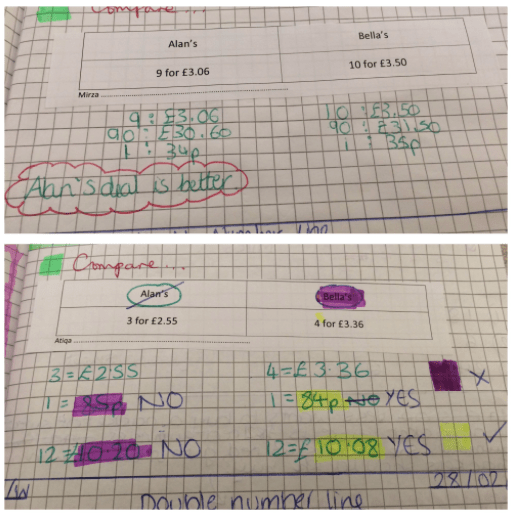 Compare...
Alan's Bella's
9 for £3.06 10 for £3.50
Mirza
9 : £3.06 10 : £3.50
90 : £30.60 90 : £31.50
1 : 34p 1 : 35p
Alan's deal is better
number line
Compare...
Alan's Bella's
3 for £2.55 4 for £3.36
Atiqa
3 = £2.55 4 = £3.36 X
1 = 85p NO 1 = 84p NO YES
12 = £10.20 NO 12 = £10.08 YES ✓
28/02
Double number line